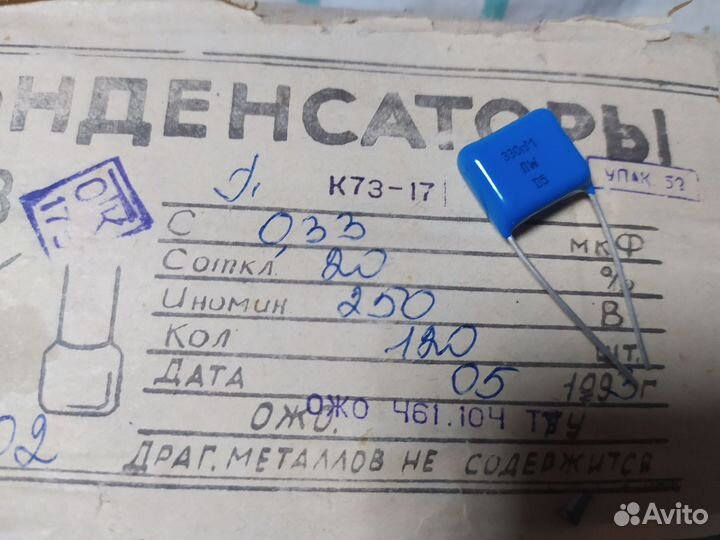 ОНДЕНСАТОРЫ
К73-17
330nM
ЛW
D5
УПАК. 52
ОТК
17
С 0,33 мкФ
Соткл. 20 %
Uномин 250 В
Кол 120 шт.
Дата 05 1993г
ОЖО. ОЖО 461.104 ТУ
02
ДРАГ. МЕТАЛЛОВ НЕ СОДЕРЖИТСЯ
Avito